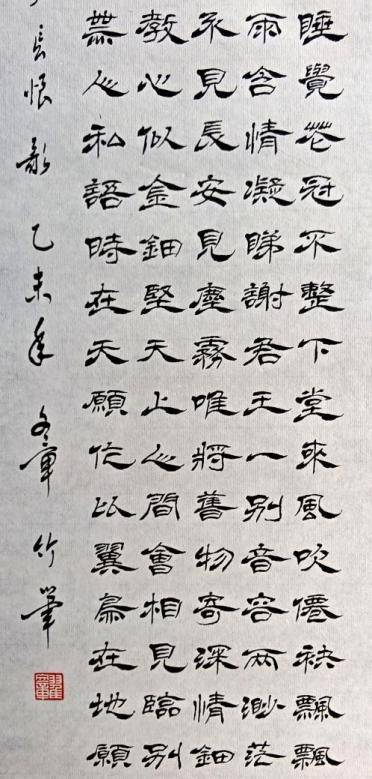 睡覺花冠不整下堂來風吹僊袂飄飄
雨含情凝睇謝君王一別音容兩渺茫
不見長安見塵霧唯將舊物寄深情鈿
教心似金鈿堅天上人間會相見臨別
無人私語時在天願作比翼鳥在地願
長恨歌 乙未年 冬章 竹筆